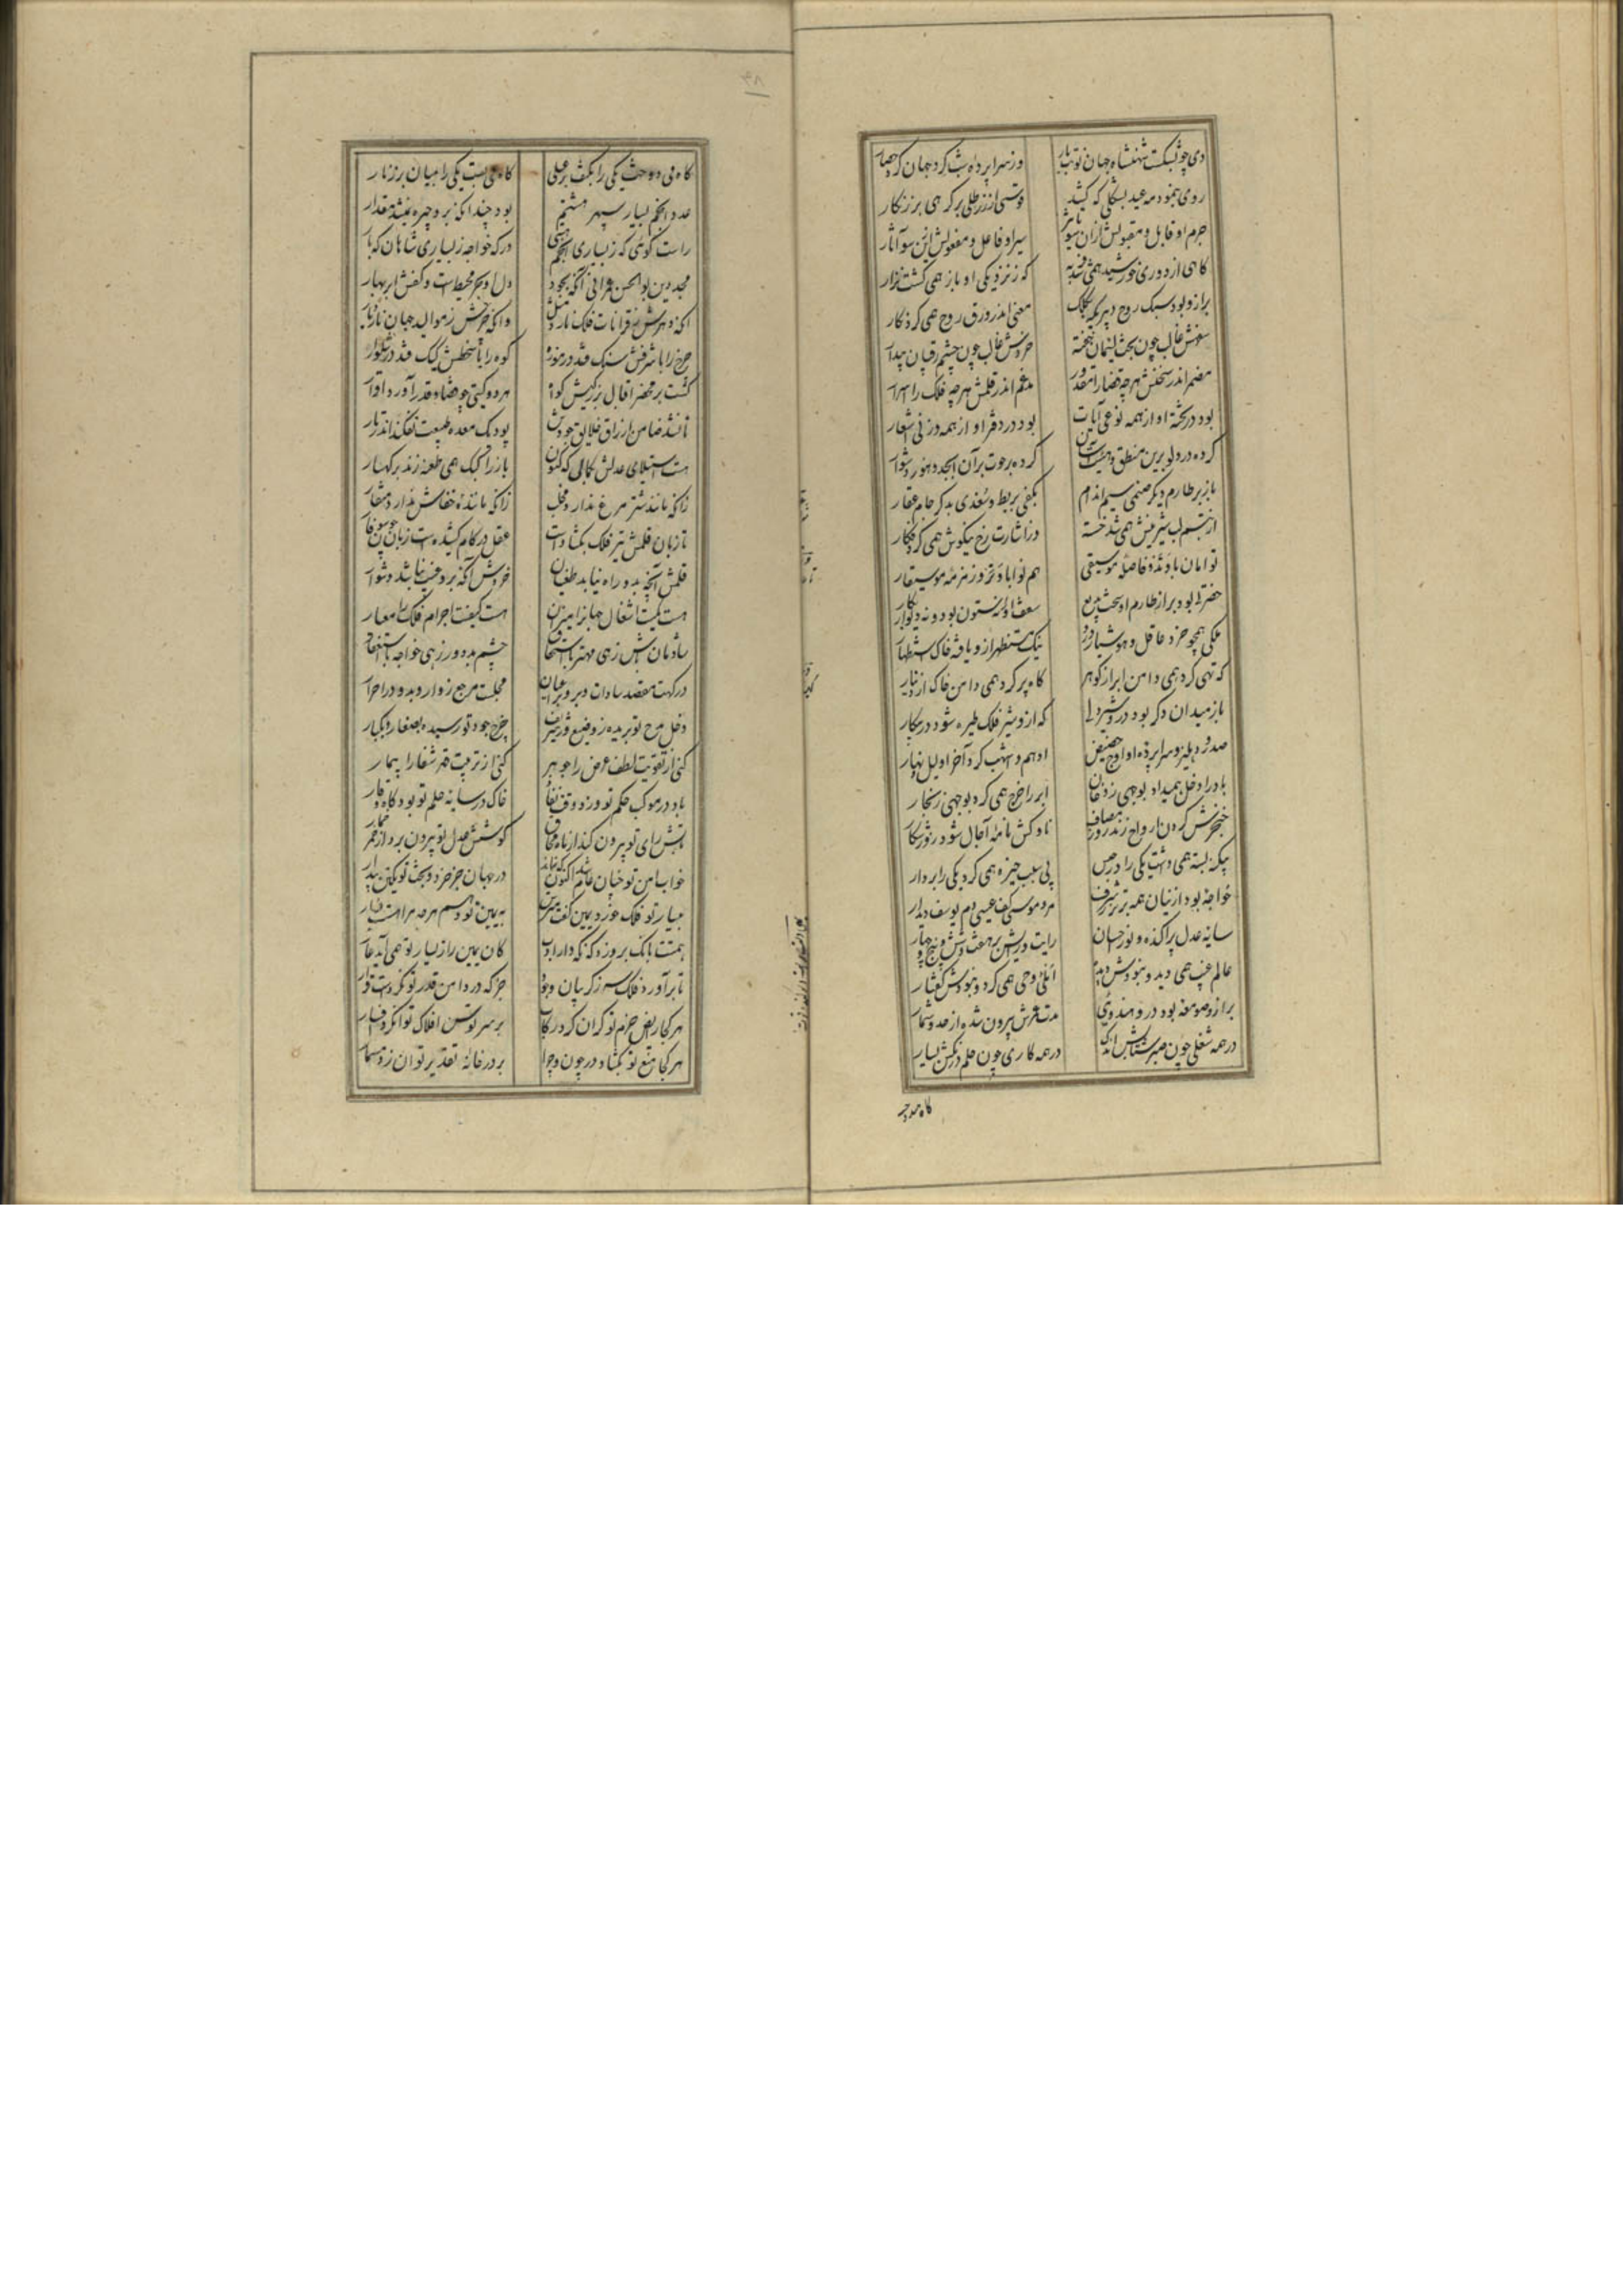 دی چو بشکست شهنشاه جهان نوبت بار
وز سراپرده شب کرد جهان کرد حصار
روی بنمود مه عید بشکلی که کشید
قوسی از زر طلی بر کرهی بر زنکار
جرم او قابل و مقبولش ازان سو تاثیر
سیر او فاعل و مفعولش ازین سو آثار
کاهی از دوری خورشید همی شد فربه
که ز نزدیکی او باز همی کشت نزار
برازو بود سبک روح دبیری که بکلک
معنی اندر ورق روح همی کرد نکار
سخنش غالب چون بخت لئیمان خفته
خردش غالب چون چشم رقیبان بیدار
مضمر اندر سخنش هرچه قضا را مقدور
مدغم اندر قلمش هرچه فلک را اسرار
بود در تخته او از همه نوعی آیات
بود در دفتر او از همه وزنی اشعار
کرده در دلو برین منطق
باز بر طارم دیکر صنمی سیم اندام
بکفی بربط و سغدی بدکر جام عقار
از تبسم لب شیرینش همی شد خسته
وز اشارت رخ نیکوش همی کرد فکار
توامان با وتد و فاصله موسیقی
هم نوا با وتر و زمزمه موسیقار
حضرتی بود بر از طارم او سخت بدیع
سقف او نه بستون بود و نه دیوار
ملکی همچو خرد عاقل و هوشیار درو
که تهی کرد همی دامن ابر از کوهر
کاه پر کرد همی دامن خاک از دینار
باز میدان دکر بود درو شیردلی
که ازو شیر فلک طیره شود در پیکار
باد را دخل همیداد بوجهی ز دخان
ابر را خرج همی کرد بوجهی ز بخار
ناوکش نامه آجال شود روز شکار
بی سبب خیره همی کرد یکی را بر دار
خواجه بود ازیشان همه برتر بشرف
مرد موسی کف عیسی دم یوسف دیدار
سایه عدل پراکنده و نور احسان
رایت دولتش بر هفت و شش و پنج و چهار
عالم غیب همی دید و نبودش دیده
املی وحی همی کرد و نبودش کفتار
برازو صومعه بود درو هندوئی
مدت عمرش بیرون شده از حد و شمار
در همه شغلی چون صبر شتابش اندک
در همه کاری چون حلم درنکش بسیار
کاه می دوخت یکی را بکتف بر عسلی
کاه می بست یکی را بمیان بر زنار
عدد انجم بسیار سپهر هشتم
بود چندانکه برو چیره نمیشد مقدار
راست کوئی که ز بسیاری انجم هستی
درکه خواجه ز بسیاری شاهان که بار
مجد دین بوالحسن عمرانی آنکه بجود
دل او بحر محیط است و کفش ابر بهار
آنکه دهرش بقرانات فلک نارد مثل
وانکه چرخش ز موالید جهان نارد یار
چرخ را با شرفش سنک فتد در موزه
کوه را با سخطش کیک فتد در شلوار
کشت بر محضر اقبال بزرکیش کواه
هر دو کیتی چو قضا و قدر آورد اقرار
تا نشد ضامن ارزاق خلایق جودش
بود یک معده طبیعت نفکند اندر تار
هست استیلای عدلش بکمالی که کنون
باز را کبک همی طعنه زند بر کهسار
زانکه ماننده شتر مرغ ندارد مخلب
زانکه ماننده خفاش ندارد منقار
تا زبان قلمش تیر فلک بکشادست
عقل در کام کشیدست زبان چون سوفار
قلمش آنچه بدو راه نیابد طغیان
خردش آنکه برو غیب نباشد دشوار
هست کمیت اشغال جهانرا میزان
هست کیفیت اجرام فلک را معیار
شادمان باش زهی مهتر باستحقاق
چشم بد دور زهی خواجه باستظهار
درکهت مقصد سادات و بزرو عیان
مجلست مرجع زوار و بدو در احرار
دخل مدح تو بریده ز وضیع و ز شریف
خرج جود تو رسیده بصغار و بکبار
کنی از تقویت لطف عرض را جوهر
کنی از تربیت قهر شفا را بیمار
باد در موکب حکم تو ورزد وقت نفاذ
خاک در سایه حلم تو بود کاه وقار
تابش رای تو بیرون کند از ماه محاق
کوشش عدل تو بیرون برد از خمر خمار
خواب امن تو چنان عام شد اکنون که نماند
در جهان جز خرد و بخت تو یکتن بیدار
بیسار تو فلک خورد یمین کفت
بیمین تو دهم هرچه مرا هست یسار
همتت بانک برو زد که نکه دار ادب
کان یمین را ز یسار تو همی آید عار
تا برآورد فلک سر ز کریبان وجود
جز که در دامن قدر تو نکردست قرار
هر کجا رایض حزم تو کران کرد رکاب
بر سر توسن افلاک توان کرد فسار
هر کجا منع تو بکشاد در چون و چرا
بر در خانه تقدیر توان زد مسمار